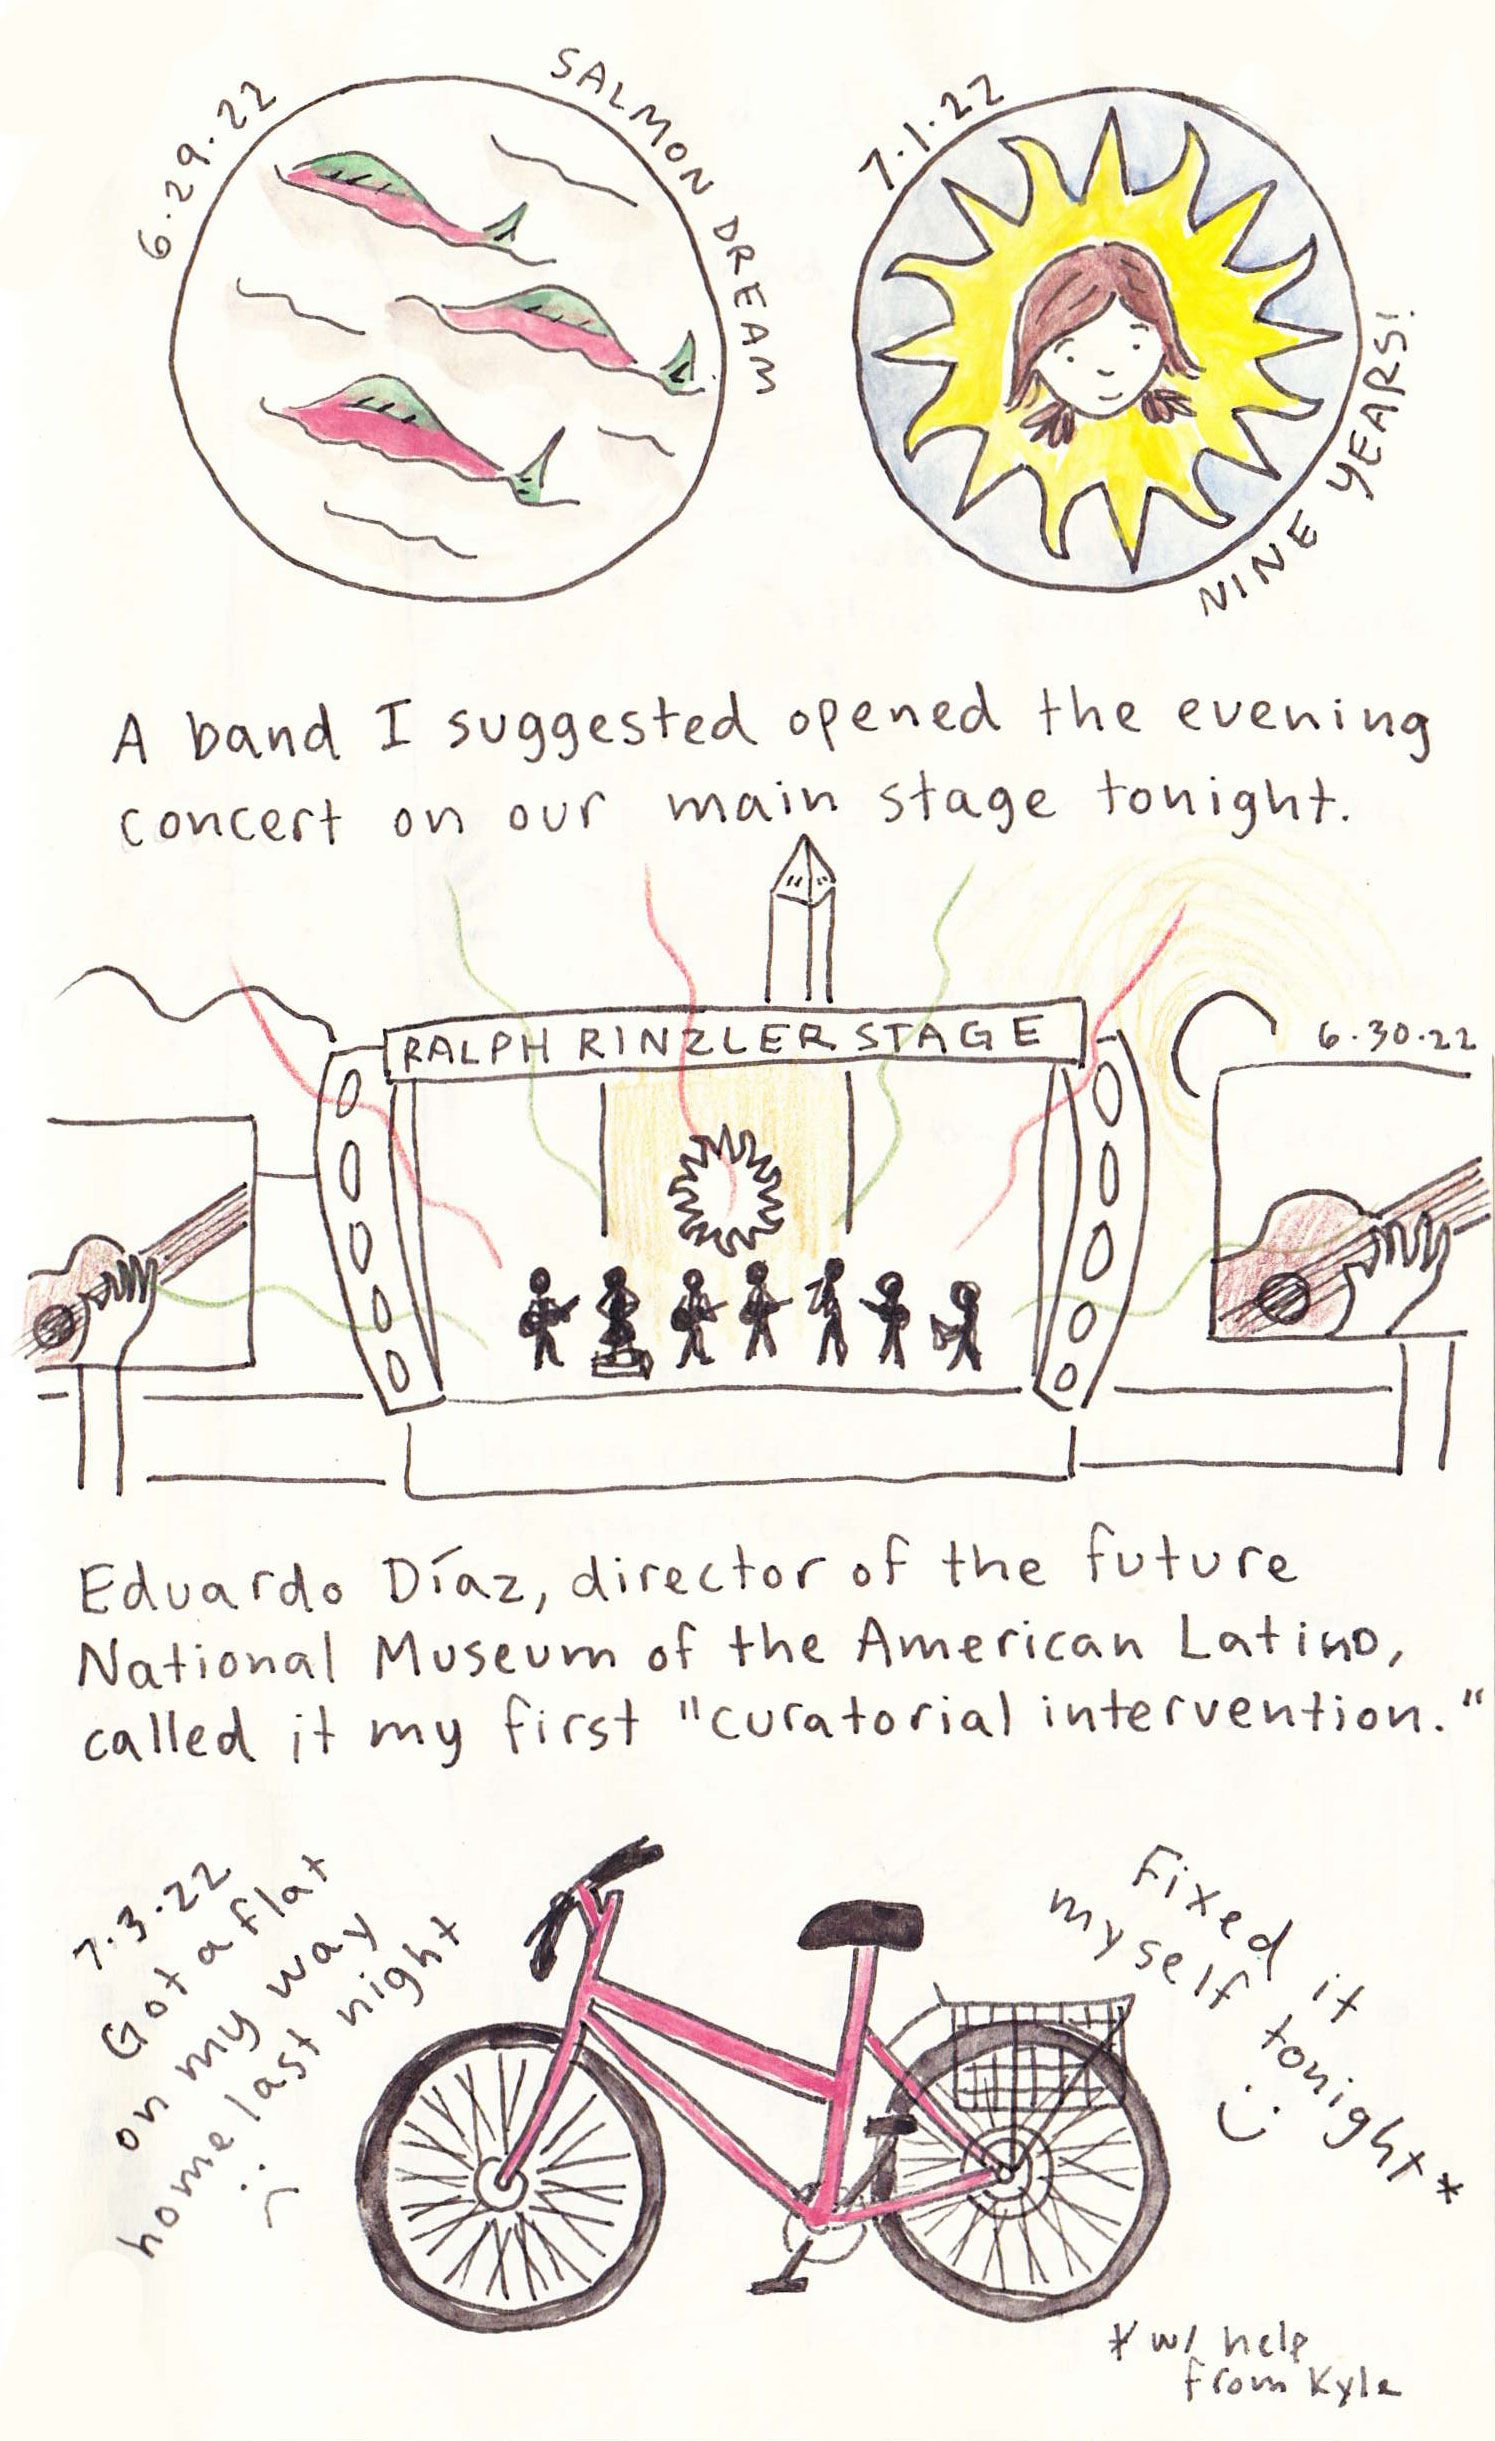 6.29.22
SALMON DREAM
7.1.22
NINE YEARS!
A band I suggested opened the evening
concert on our main stage tonight.
RALPH RINZLER STAGE
6.30.22
Eduardo Díaz, director of the future
National Museum of the American Latino,
called it my first "curatorial intervention."
7.3.22
Got a flat
on my way
home last night
:(
Fixed it
myself tonight*
:)
* w/ help
from Kyle